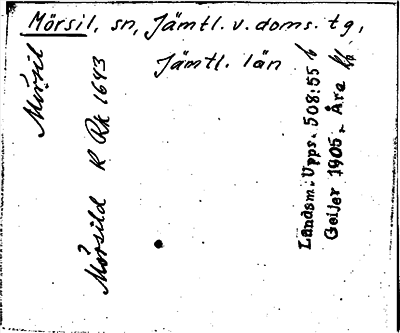 Mörsil, sn, Jämtl. v. doms. tg,
Jämtl. län
Mörsil
Mörsild R Rk 1643
Landsm: Upps. 508:55 b
Geijer 1905. Åre